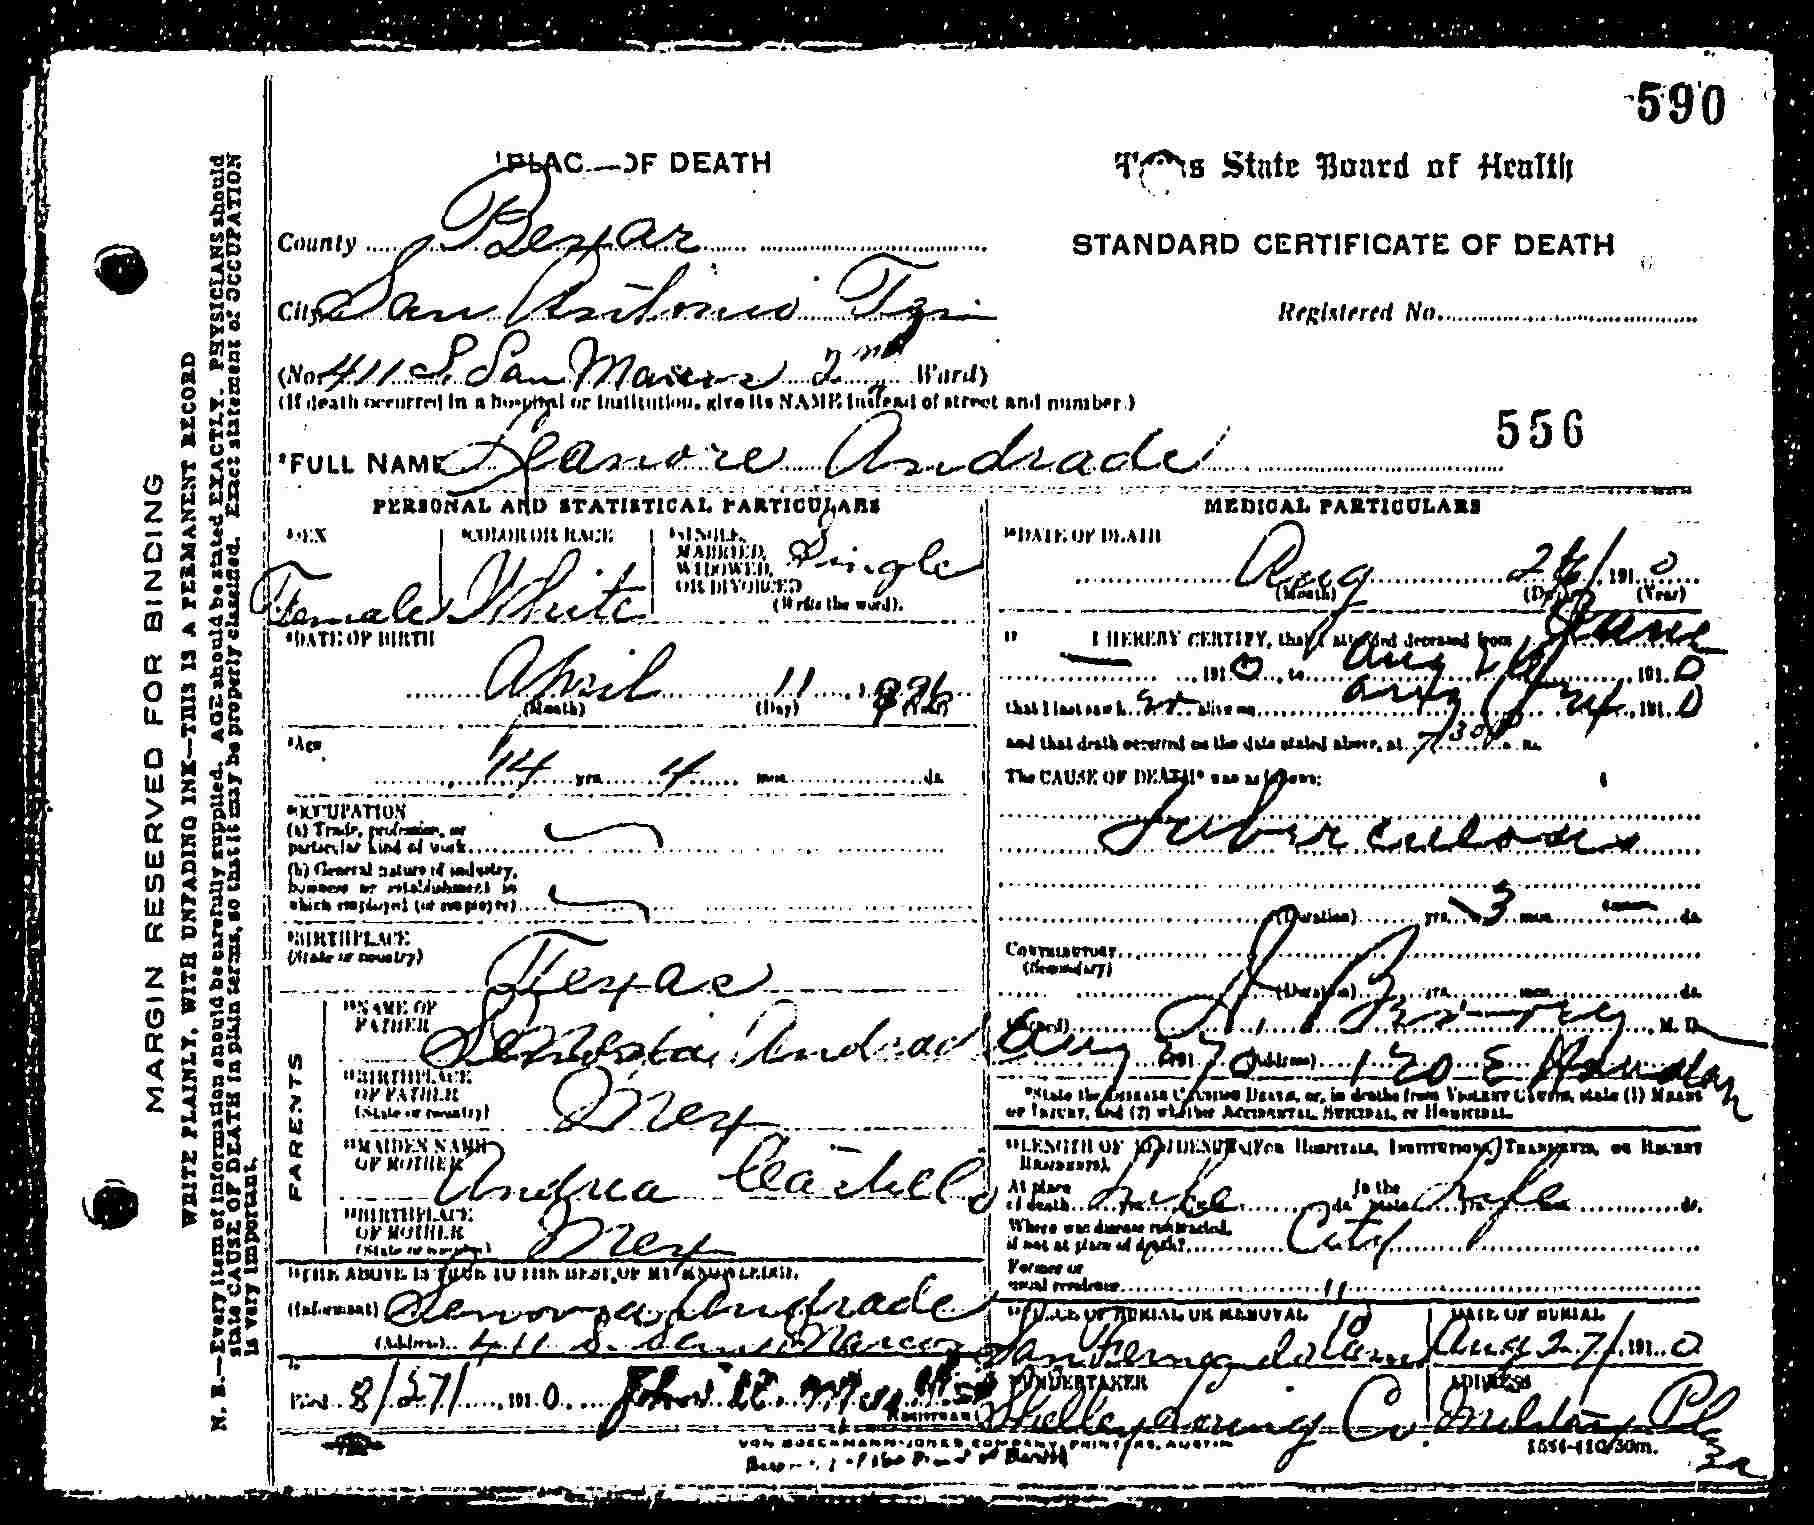 590
PLAC OF DEATH
Texas State Board of Health
County Bexar
STANDARD CERTIFICATE OF DEATH
City San Antonio
Registered No.
(No. 411 S. San Marcos 2nd Ward)
(If death occurred in a hospital or institution, give its NAME instead of street and number.)
556
FULL NAME Leanore Andrade
PERSONAL AND STATISTICAL PARTICULARS
SEX
Female
COLOR OR RACE
White
SINGLE, MARRIED, WIDOWED, OR DIVORCED
(Write the word).
Single
DATE OF BIRTH
April 11
(Month) (Day)
Age
14 yrs. 4 mos. ds.
OCCUPATION
(a) Trade, profession, or
particular kind of work
(b) General nature of industry,
business or establishment in
which employed (or employer)
BIRTHPLACE
(State or country)
Texas
PARENTS
NAME OF
FATHER
Andrade
BIRTHPLACE
OF FATHER
(State or country)
Mex
MAIDEN NAME
OF MOTHER
Andrea Castello
BIRTHPLACE
OF MOTHER
(State or country)
Mex
THE ABOVE IS TRUE TO THE BEST OF MY KNOWLEDGE.
(Informant) Andrade
(Address) 411 S. San Marcos
Filed 8/27/, 1910.
Registrar
MEDICAL PARTICULARS
DATE OF DEATH
Aug 26/, 1910
(Month) (Day) (Year)
I HEREBY CERTIFY, that I attended deceased from June
1910, to Aug 26, 1910
that I last saw her alive on Aug, 1910
and that death occurred on the date stated above, at 7:30 P m.
The CAUSE OF DEATH* was as follows:
Tuberculosis
(Duration) yrs. 3 mos. ds.
CONTRIBUTORY
(Secondary)
(Duration) yrs. mos. ds.
(Signed) M. D.
Aug 27 1910 (Address) 120 E Houston
*State the DISEASE CAUSING DEATH, or, in deaths from VIOLENT CAUSES, state (1) MEANS
OF INJURY, and (2) whether ACCIDENTAL, SUICIDAL, or HOMICIDAL.
LENGTH OF RESIDENCE (FOR HOSPITALS, INSTITUTIONS, TRANSIENTS, OR RECENT
RESIDENTS).
At place
of death Life
In the
State Life ds.
Where was disease contracted,
if not at place of death? City
Former or
usual residence "
PLACE OF BURIAL OR REMOVAL
San Fernando Cem
DATE OF BURIAL
Aug 27/ 1910
UNDERTAKER
Shelley Loring Co
ADDRESS
Military Plaza
VON BOECKMANN-JONES COMPANY, PRINTERS, AUSTIN
MARGIN RESERVED FOR BINDING
WRITE PLAINLY, WITH UNFADING INK—THIS IS A PERMANENT RECORD
N. B.—Every item of information should be carefully supplied. AGE should be stated EXACTLY. PHYSICIANS should
state CAUSE OF DEATH in plain terms, so that it may be properly classified. Exact statement of OCCUPATION
is very important.